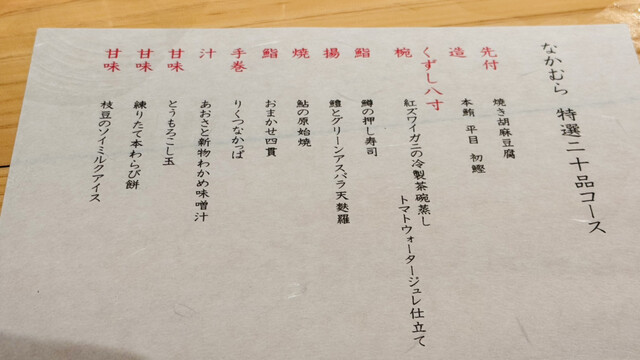 なかむら 特選二十品コース
先付
焼き胡麻豆腐
造
本鮪 平目 初鰹
くずし八寸
椀
紅ズワイガニの冷製茶碗蒸し
トマトウォータージュレ仕立て
鮨
鱒の押し寿司
揚
鱧とグリーンアスパラ天麩羅
焼
鮎の原始焼
鮨
おまかせ四貫
手巻
りくつなかっぱ
汁
あおさと新物わかめ味噌汁
甘味
とうもろこし玉
甘味
練りたて本わらび餅
甘味
枝豆のソイミルクアイス